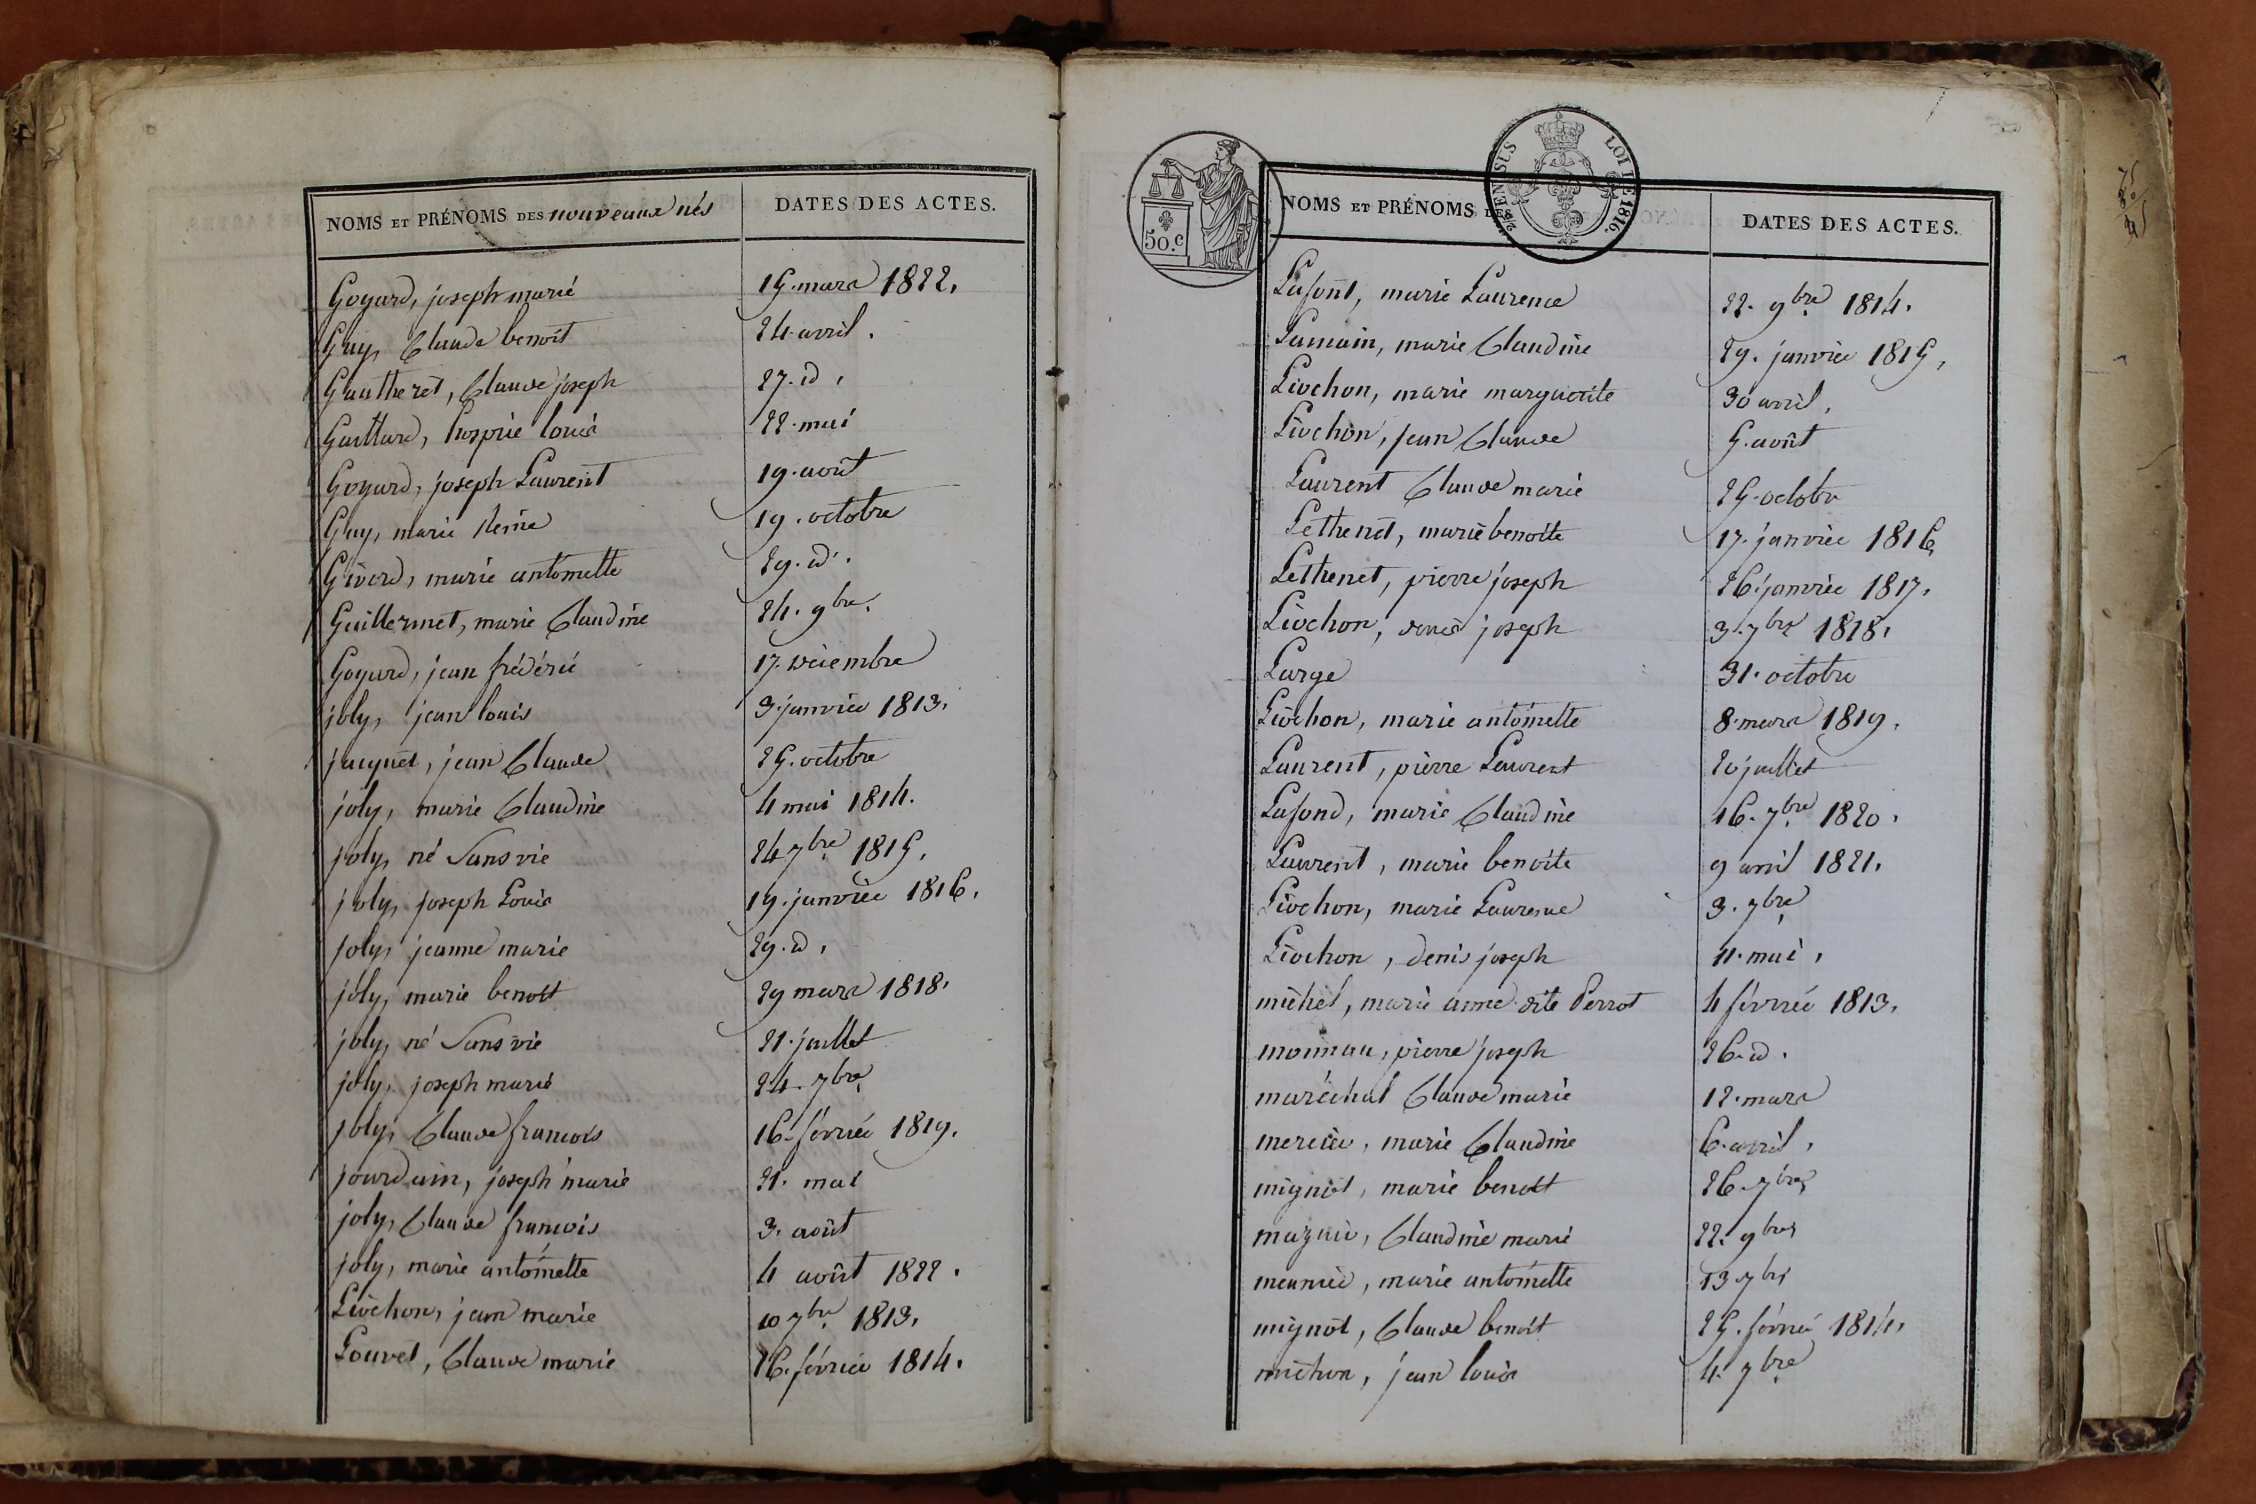 NOMS ET PRÉNOMS DES nouveaux nés
DATES DES ACTES.
Goyard, joseph marie 15. mars 1822.
Guy, Claude benoit 24 avril.
Gautheret, Claude joseph 27. d.
Gaillard, louis 22. mai
Goyard, joseph Laurent 19. août
Guy, marie Reine 19. octobre
Givord, marie antoinette 29. d.
Guillermet, marie Claudine 24. 9bre.
Goyard, jean frédéric 17. décembre
joly, jean louis 3. janvier 1813.
jacquet, jean Claude 25. octobre
joly, marie Claudine 4 mai 1814.
joly, né Sans vie 24 7bre 1815.
joly, joseph Louis 19. janvier 1816.
joly, jeanne marie 29. d.
joly, marie benoit 29 mars 1818.
joly, né Sans vie 21. juillet
joly, joseph marie 24. 7bre.
joly, Claude francois 16. février 1819.
jourdain, joseph marie 21. mai
joly, Claude francois 3. août
joly, marie antoinette 4 août 1822.
Livchon, jean marie 10 7bre. 1813.
Louvet, Claude marie 26. février 1814.
50.c
EN SUS
LOI DE 1816.
NOMS ET PRÉNOMS DES
DATES DES ACTES.
Lafont, marie Laurence 22. 9bre. 1814.
Lamain, marie Claudine 29. janvier 1815.
Livchon, marie marguerite 30 avril.
Livchon, jean Claude 5. août
Laurent Claude marie 25. octobre
Lethenet, marie benoite 17. janvier 1816.
Lethenet, pierre joseph 26. janvier 1817.
Livchon, denis joseph 3. 7bre 1818.
Large 31. octobre
Livchon, marie antoinette 8. mars 1819.
Laurent, pierre Laurent 20 juillet
Lafond, marie Claudine 16. 7bre. 1820.
Laurent, marie benoite 9 avril 1821.
Livchon, marie Laurence 3. 7bre
Livchon, denis joseph 11. mai.
michel, marie anne dite Perrot 4 février 1813.
monneau, pierre joseph 26. d.
maréchal Claude marie 12. mars
mercier, marie Claudine 6. avril.
mignot, marie benoit 26. 7bre
mazuir, Claudine marie 22. 9bre
meunier, marie antoinette 13 7bre
mignot, Claude benoit 25. février 1814.
michon, jean louis 4. 7bre